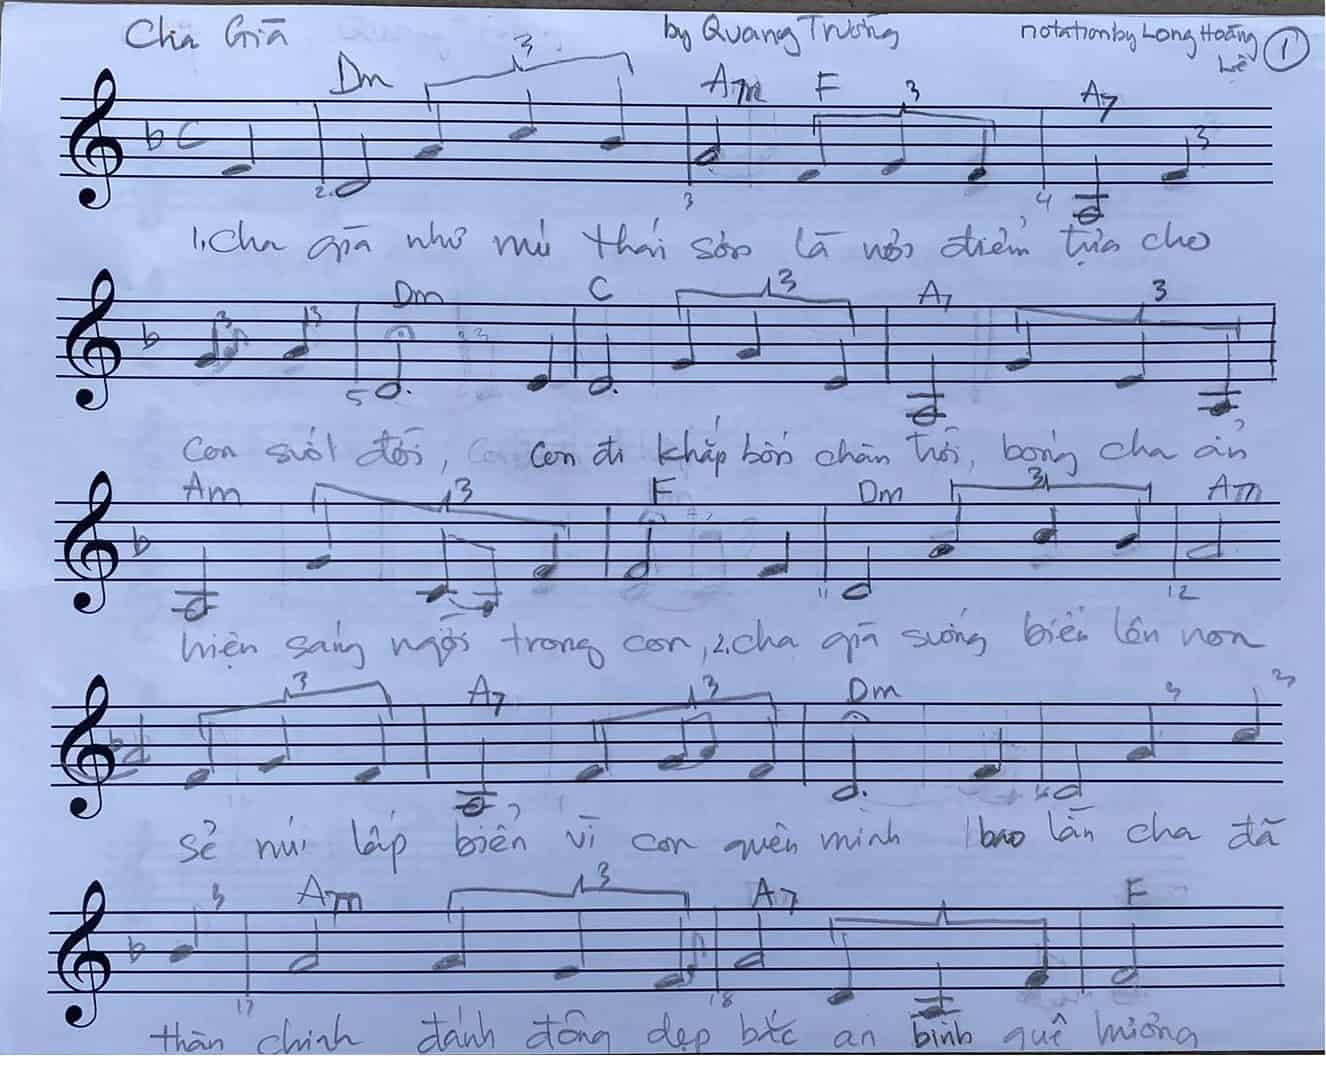 Cha Già by Quang Trường notation by Long Hoàng Lê 1
Dm 3 Am F 3 A7
C 2. 3 4 3
1, cha già như núi thái sơn là nơi điểm tựa cho
Dm C 3 A7 3
3 3 5
con suốt đời, con đi khắp bốn chân trời, bóng cha ẩn
Am 3 F Dm 3 Am
11 12
hiện sáng ngời trong con, 2. cha già sướng biển lên non
3 A7 3 Dm 3 3
sẻ núi lấp biển vì con quên mình bao lần cha đã
3 Am 3 A7 F
17 18
thân chinh đánh đông dẹp bắc an bình quê hương